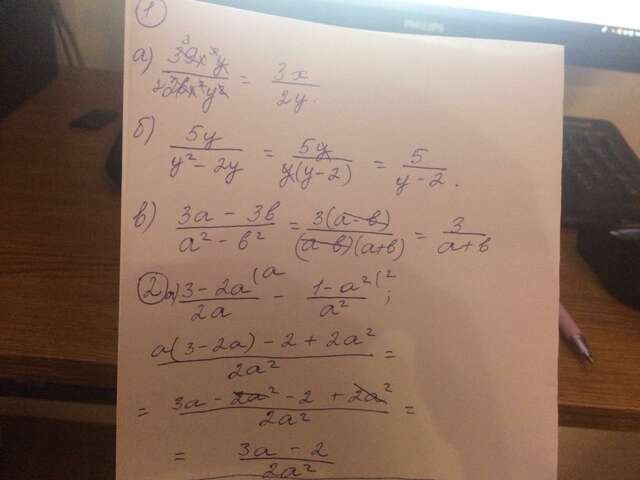 PHILIPS
1
а) 39x³y / 26x²y² = 3x / 2y.
б) 5y / y² - 2y = 5y / y(y-2) = 5 / y-2.
в) 3a - 3b / a² - b² = 3(a-b) / (a-b)(a+b) = 3 / a+b
2 а) 3-2a⁽ᵃ / 2a - 1-a²⁽² / a² ;
a(3-2a) - 2 + 2a² / 2a² =
= 3a - 2a² - 2 + 2a² / 2a² =
= 3a - 2 / 2a²